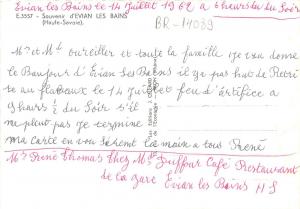 Evian les Bains le 14 Juillet 1962 a 6 heurs du Soir
E.3557 - Souvenir d'EVIAN LES BAINS
(Haute-Savoie)
BR-14039
Mr et Ms oureiller et toute la famille je vou done
le Banjour d'Evian Les Bains il ya pas
te au flambeaux le 14 Juillet feu d'artéfice a
9 heurs 1/2 du Soir s'il
ne pleut pas je termine
ma carte en vou serent la main a tous René
Mr René Thomas Chez Mr Duffour Café Restaurant
de la Gare Evian les Bains H S